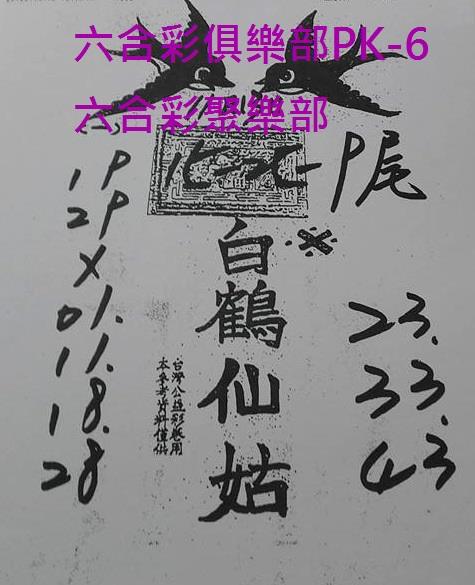 六合彩俱樂部PK-6
六合彩聚樂部
P尾
1P
2P
X
01.
11.
18.
28
白鶴仙姑
台灣公益彩券用
本參考資料僅供
23.
33.
43